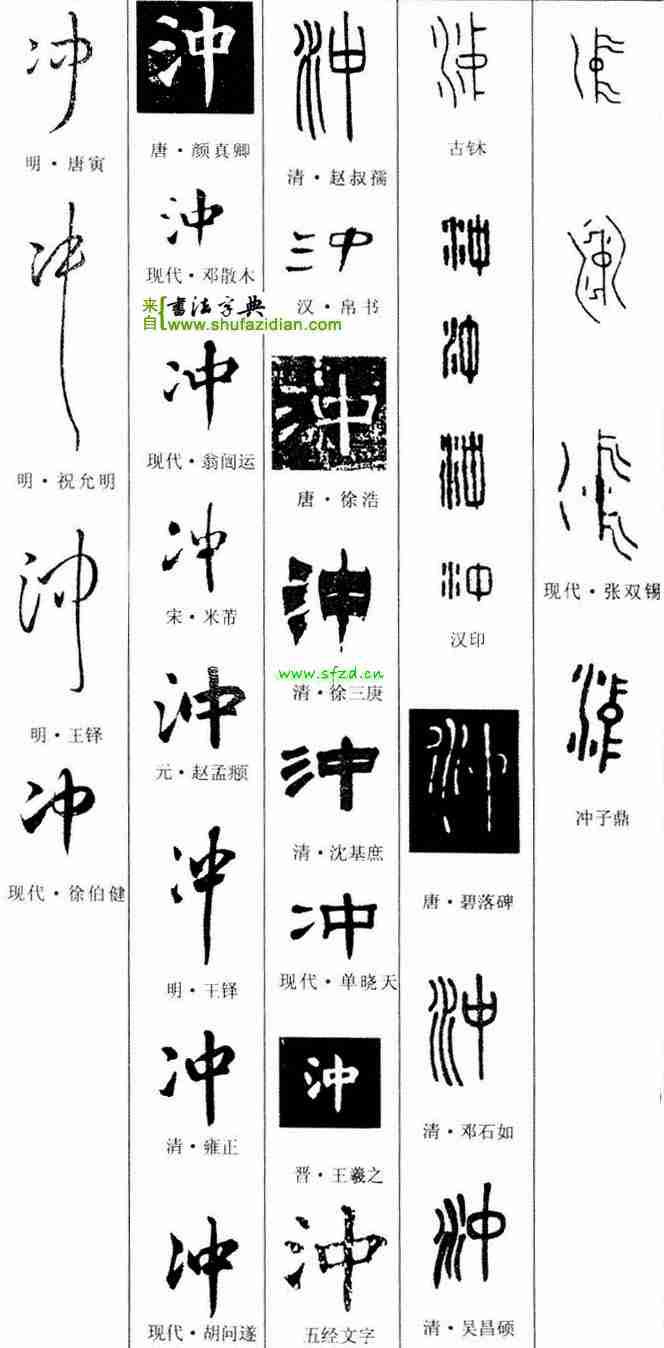 冲
明·唐寅
冲
明·祝允明
沖
明·王铎
冲
现代·徐伯健
沖
唐·颜真卿
沖
现代·邓散木
来自 書法字典
www.shufazidian.com
冲
现代·翁闿运
冲
宋·米芾
沖
元·赵孟頫
冲
明·王铎
冲
清·雍正
冲
现代·胡问遂
沖
清·赵叔孺
沖
汉·帛书
沖
唐·徐浩
沖
www.sfzd.cn
清·徐三庚
沖
清·沈基庶
冲
现代·单晓天
沖
晋·王羲之
沖
五经文字
沖
古鉥
沖
沖
沖
沖
汉印
沖
唐·碧落碑
沖
清·邓石如
沖
清·吴昌硕
现代·张双锡
沖
冲子鼎